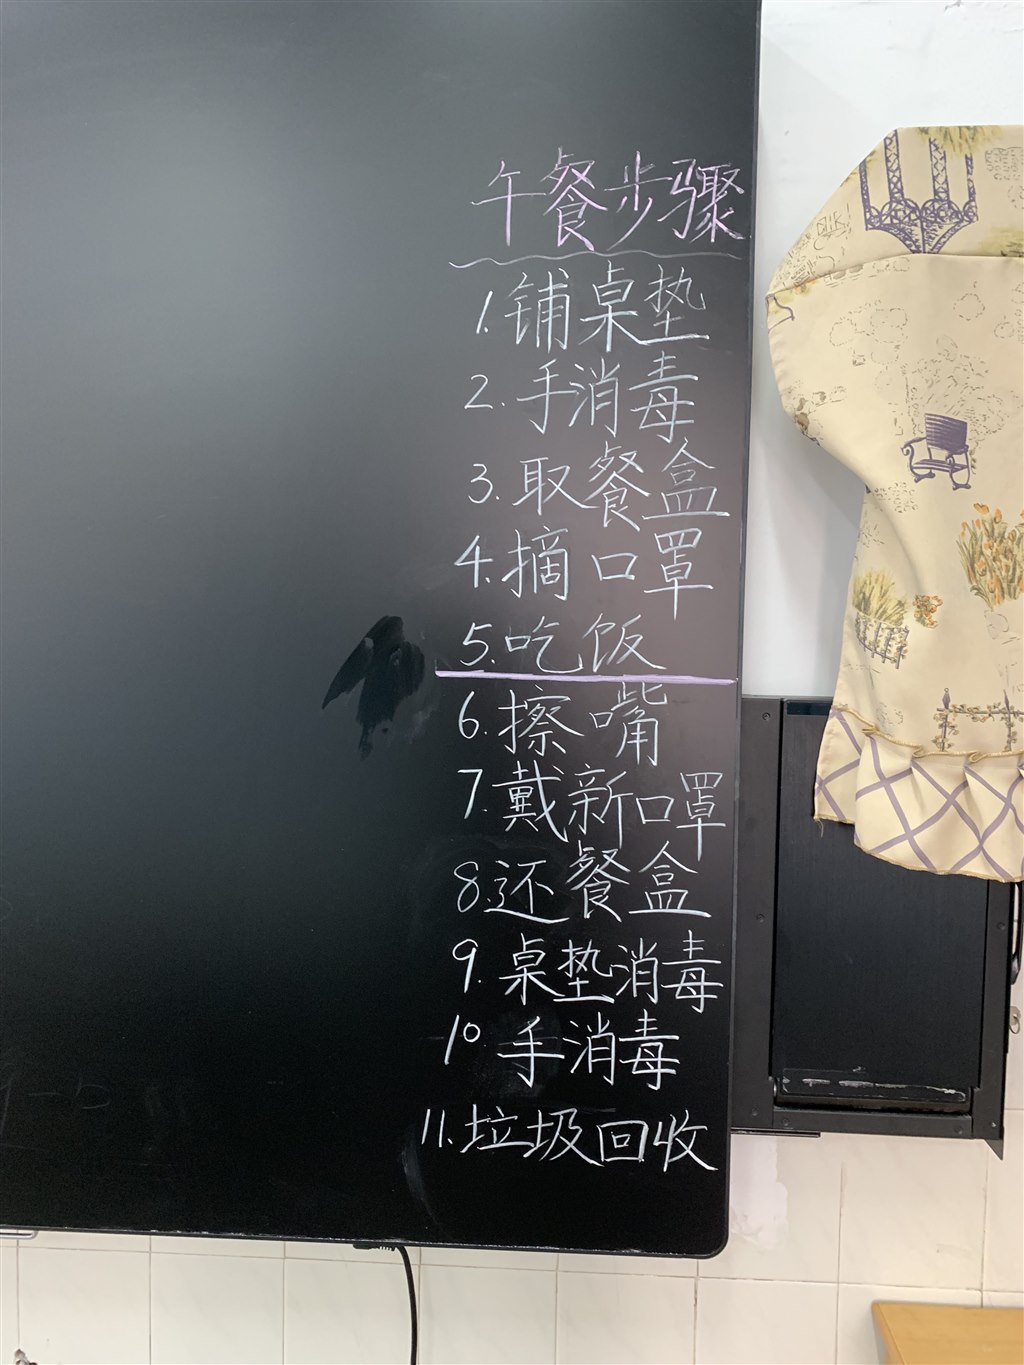 午餐步骤
1. 铺桌垫
2. 手消毒
3. 取餐盒
4. 摘口罩
5. 吃饭
6. 擦嘴
7. 戴新口罩
8. 还餐盒
9. 桌垫消毒
10 手消毒
11. 垃圾回收